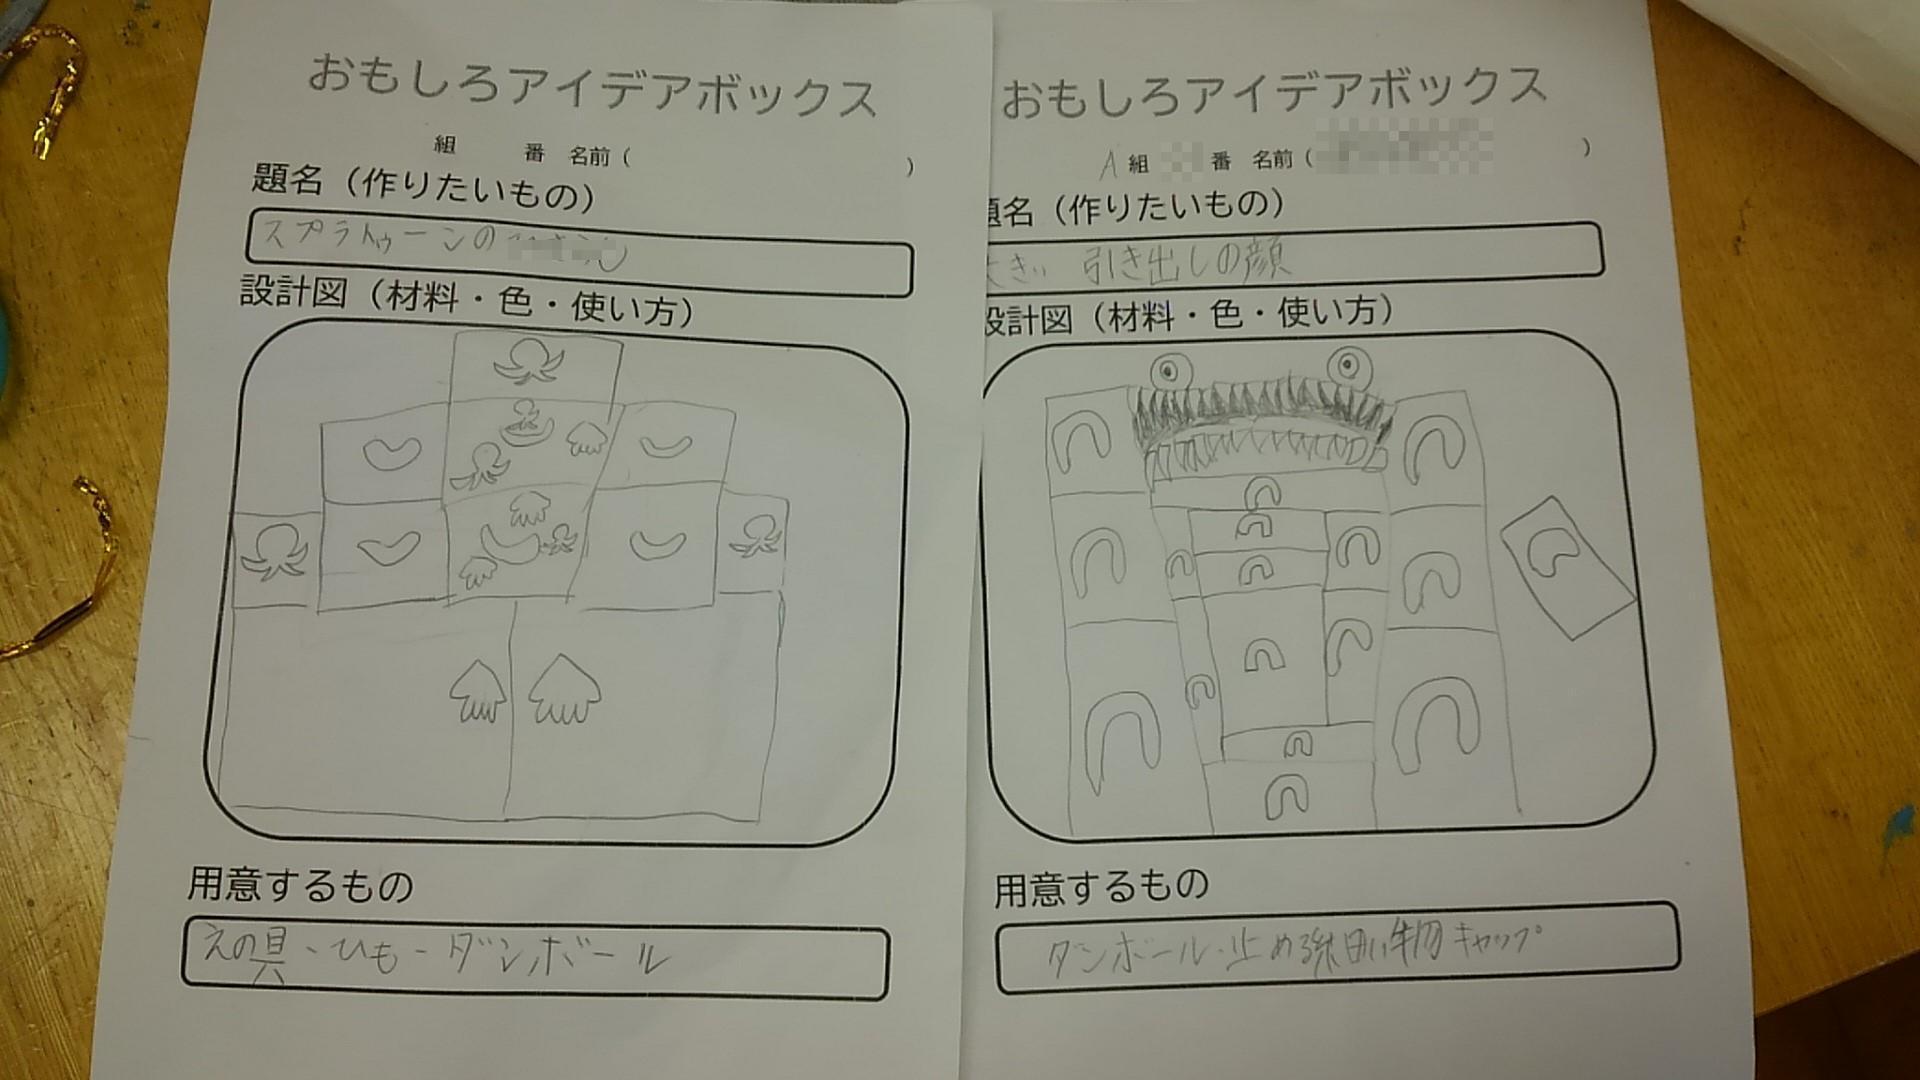 おもしろアイデアボックス
組 番 名前( )
題名(作りたいもの)
スプラトゥーンの
設計図(材料・色・使い方)
用意するもの
えの具-ひも-ダンボール
おもしろアイデアボックス
A組 番 名前( )
題名(作りたいもの)
大きい 引き出しの顔
設計図(材料・色・使い方)
用意するもの
ダンボール・止める 細い物 キャップ